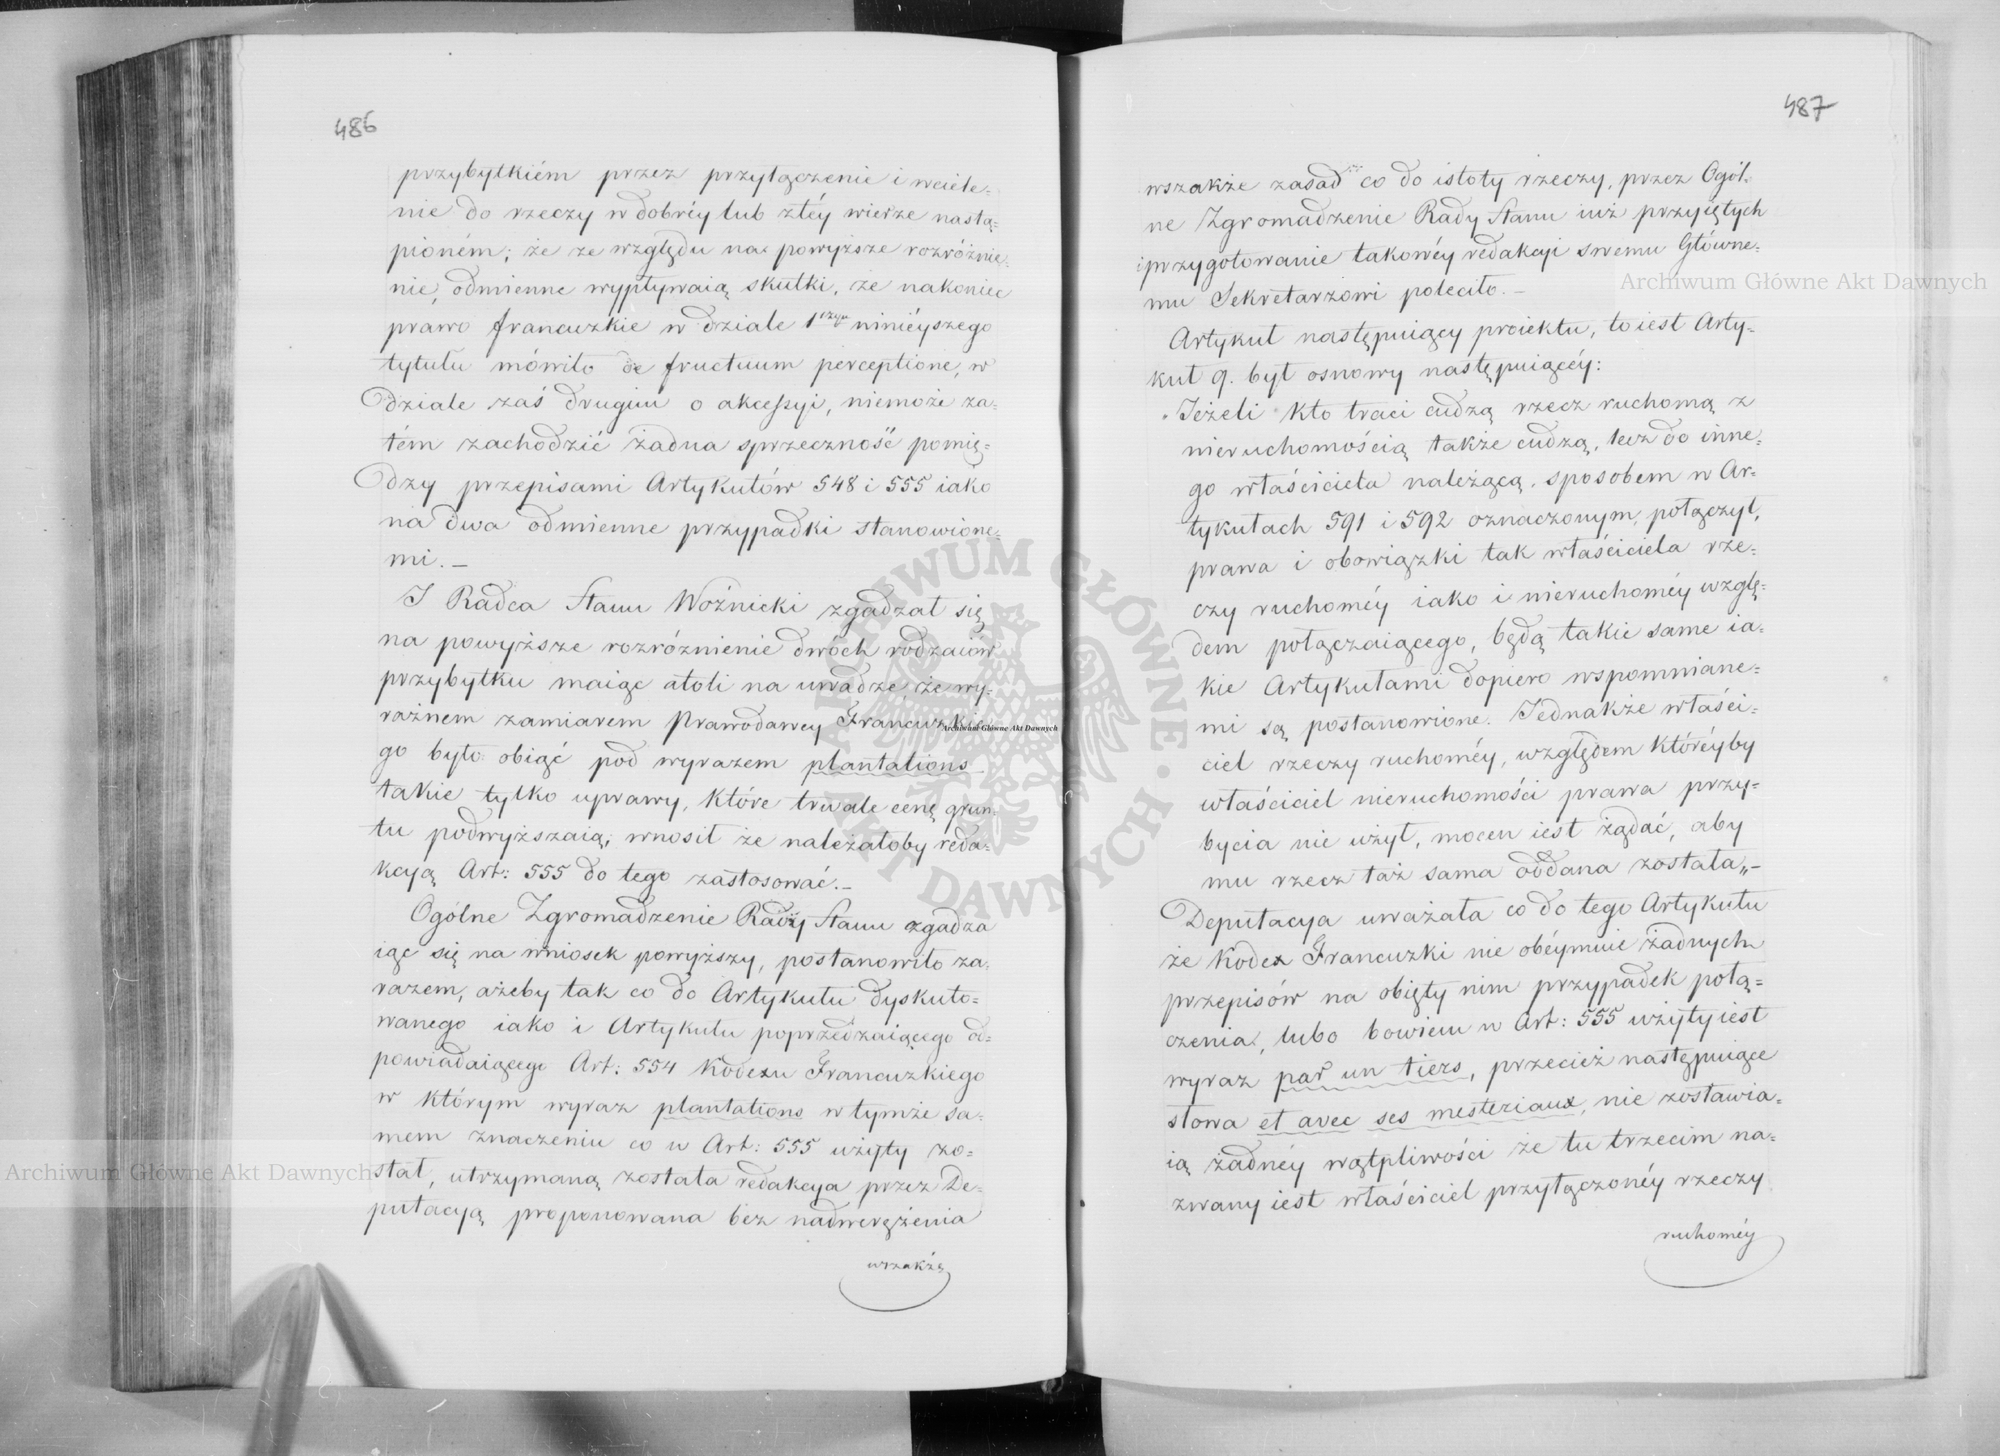 486
przybytkiém przez przyłączenie i wciele-
nie do rzeczy w dobréy lub złéy wierze nastą-
pioném; że ze względu na powyższe rozróżnie-
nie, odmienne wypływaią skutki, że nakoniec
prawo francuzkie w dziale 1szym niniéyszego
tytułu mówiło de fructuum perceptione, w
dziale zaś drugim o akcessyi, niemoże za-
tém zachodzić żadna sprzeczność pomię-
dzy przepisami Artykułów 548 i 555 iako
na dwa odmienne przypadki stanowione-
mi. —
I Radca Stanu Woźnicki zgadzał się
na powyższe rozróżnienie dwóch rodzaiów
przybytku maiąc atoli na uwadze, że wy-
raźnem zamiarem Prawodawcy Francuzkie-
go było obiąć pod wyrazem plantations
takie tylko uprawy, które trwale cenę grun-
tu podwyższaią, wnosił że należałoby reda-
kcyą Art: 555 do tego zastosować. —
Ogólne Zgromadzenie Rady Stanu zgadza
iąc się na wniosek powyższy, postanowiło za-
razem, ażeby tak co do Artykułu dyskuto-
wanego iako i Artykułu poprzedzaiącego od-
powiadaiącego Art: 554 Kodexu Francuzkiego
w którym wyraz plantations w tymże sa-
mem znaczeniu co w Art: 555 użyty zo-
stał, utrzymaną została redakcya przez De-
putacyą proponowana bez nadweręże­nia
wszakże
487
wszakże zasad co do istoty rzeczy, przez Ogól-
ne Zgromadzenie Rady Stanu iuż przyiętych
i przygotowanie takowéy redakcyi swemu Główne-
mu Sekretarzowi poleciło. —
Artykuł następuiący proiektu, to iest Arty-
kuł 9. był osnowy następuiącéy:
„Ieżeli kto traci cudzą rzecz ruchomą z
nieruchomością także cudzą, lecz do inne-
go właściciela należącą, sposobem w Ar-
tykułach 591 i 592 oznaczonym, połączył,
prawa i obowiązki tak właściciela rze-
czy ruchoméy iako i nieruchoméy wzglę-
dem połączaiącego, będą takie same ia-
kie Artykułami dopiero wspomniane-
mi są postanowione. Iednakże właści-
ciel rzeczy ruchoméy, względem któréyby
właściciel nieruchomości prawa przy-
bycia nie użył, mocen iest żądać, aby
mu rzecz taż sama oddana została„ —
Deputacya uważała co do tego Artykułu
że Kodex Francuzki nie obéymuie żadnych
przepisów na obięty nim przypadek połą-
czenia, lubo bowiem w Art: 555 użyty iest
wyraz par un tiers, przecież następuiące
słowa et avec ses mesteriaux, nie zostawia-
ią żadnéy wątpliwości że tu trzecim na-
zwany iest właściciel przyłączonéy rzeczy
ruchoméy
Archiwum Główne Akt Dawnych
Archiwum Główne Akt Dawnych
Archiwum Główne Akt Dawnych
ARCHIWUM GŁÓWNE · AKT DAWNYCH ·